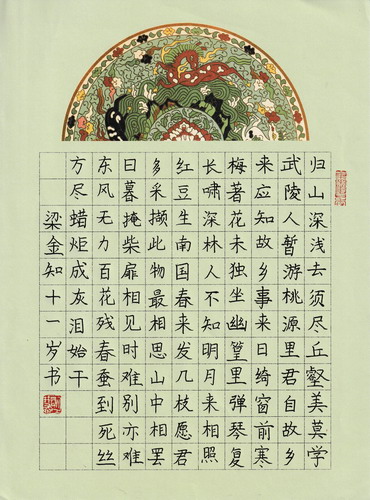 归山深浅去须尽丘壑美莫学
武陵人暂游桃源里君自故乡
来应知故乡事来日绮窗前寒
梅著花未独坐幽篁里弹琴复
长啸深林人不知明月来相照
红豆生南国春来发几枝愿君
多采撷此物最相思山中相罢
日暮掩柴扉相见时难别亦难
东风无力百花残春蚕到死丝
方尽蜡炬成灰泪始干
梁金知十一岁书